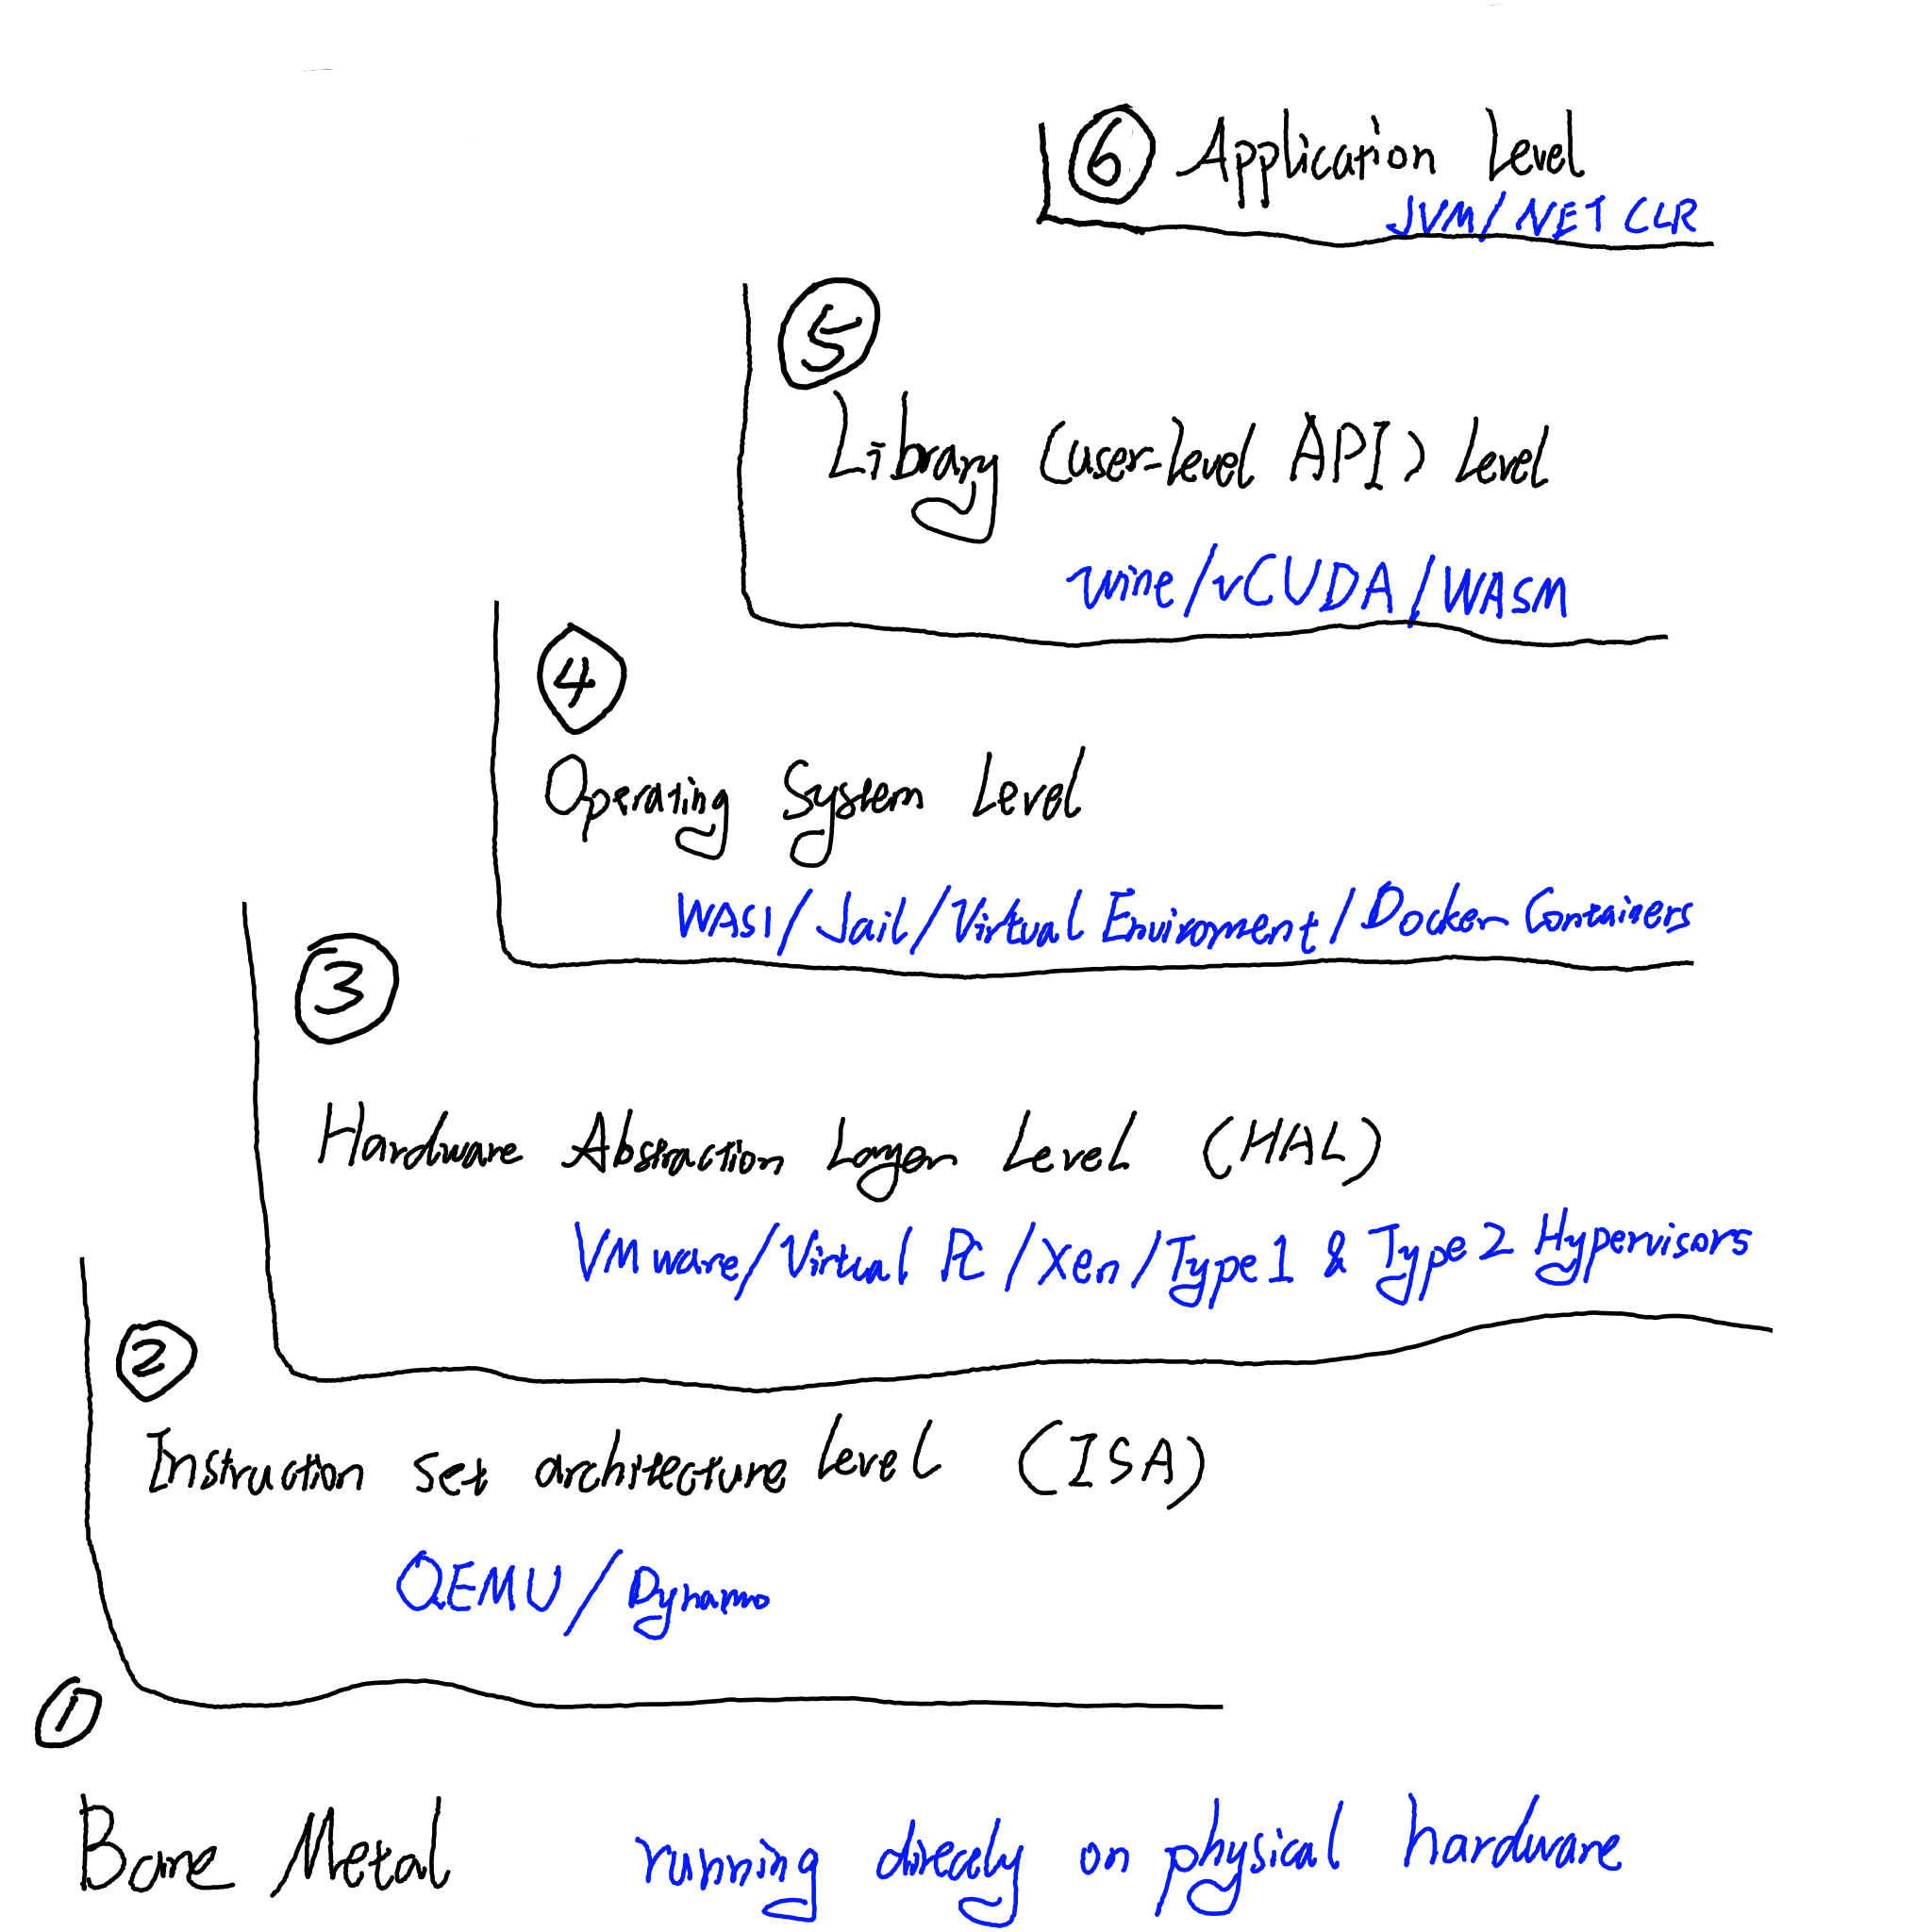 ⑥ Application Level
JVM/NET CLR
⑤
Library (user-level API) Level
wine/vCUDA/WASM
④
Operating System Level
WASI/Jail/Virtual Enviroment/Docker Containers
③
Hardware Abstraction Layer Level (HAL)
VMware/Virtual PC/Xen/Type1 & Type2 Hypervisors
②
Instruction set architecture Level (ISA)
QEMU/Dynamo
①
Bare Metal running directly on physical hardware